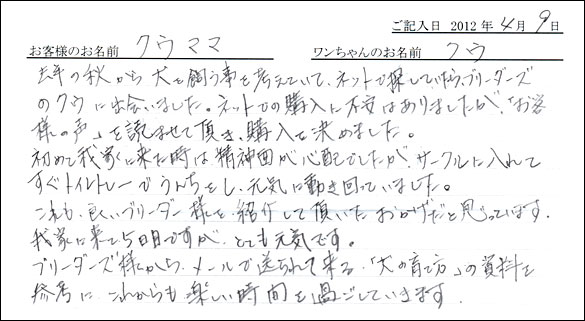 ご記入日 2012年4月9日
お客様のお名前 クウママ ワンちゃんのお名前 クウ
去年の秋から犬を飼う事を考えていて、ネットで探していたらブリーダーズ
のクウに出会いました。ネットでの購入に不安はありましたが、「お客
様の声」を読ませて頂き、購入を決めました。
初めて我家に来た時は精神面が心配でしたが、サークルに入れて
すぐトイレトレーでうんちをし、元気に動き回っていました。
これも、良いブリーダー様を紹介して頂いたおかげだと思っています。
我家に来て5日目ですが、とても元気です。
ブリーダーズ様から、メールで送られて来る「犬の育て方」の資料を
参考に、これからも楽しい時間を過ごしていきます。